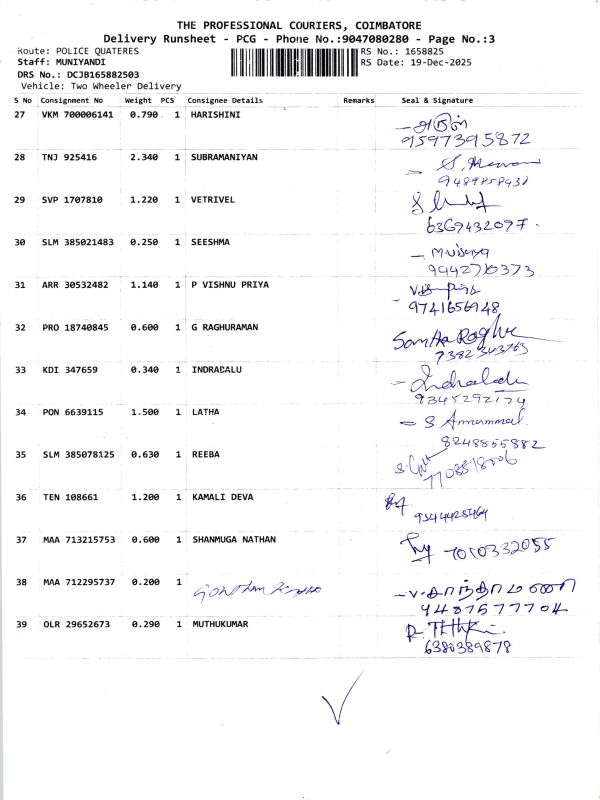 THE PROFESSIONAL COURIERS, COIMBATORE
Delivery Runsheet - PCG - Phone No.:9047080280 - Page No.:3
Route: POLICE QUATERES RS No.: 1658825
Staff: MUNIYANDI RS Date: 19-Dec-2025
DRS No.: DCJB165882503
Vehicle: Two Wheeler Delivery
S No Consignment No Weight PCS Consignee Details Remarks Seal & Signature
27 VKM 700006141 0.790 1 HARISHINI
9597395872
28 TNJ 925416 2.340 1 SUBRAMANIYAN
29 SVP 1707810 1.220 1 VETRIVEL
6369432097
30 SLM 385021483 0.250 1 SEESHMA
31 ARR 30532482 1.140 1 P VISHNU PRIYA
32 PRO 18740845 0.600 1 G RAGHURAMAN
7382343763
33 KDI 347659 0.340 1 INDRABALU
9345292174
34 PON 6639115 1.500 1 LATHA
S Ammammal
8248855882
35 SLM 385078125 0.630 1 REEBA
36 TEN 108661 1.200 1 KAMALI DEVA
37 MAA 713215753 0.600 1 SHANMUGA NATHAN
38 MAA 712295737 0.200 1
39 OLR 29652673 0.290 1 MUTHUKUMAR
6380389878